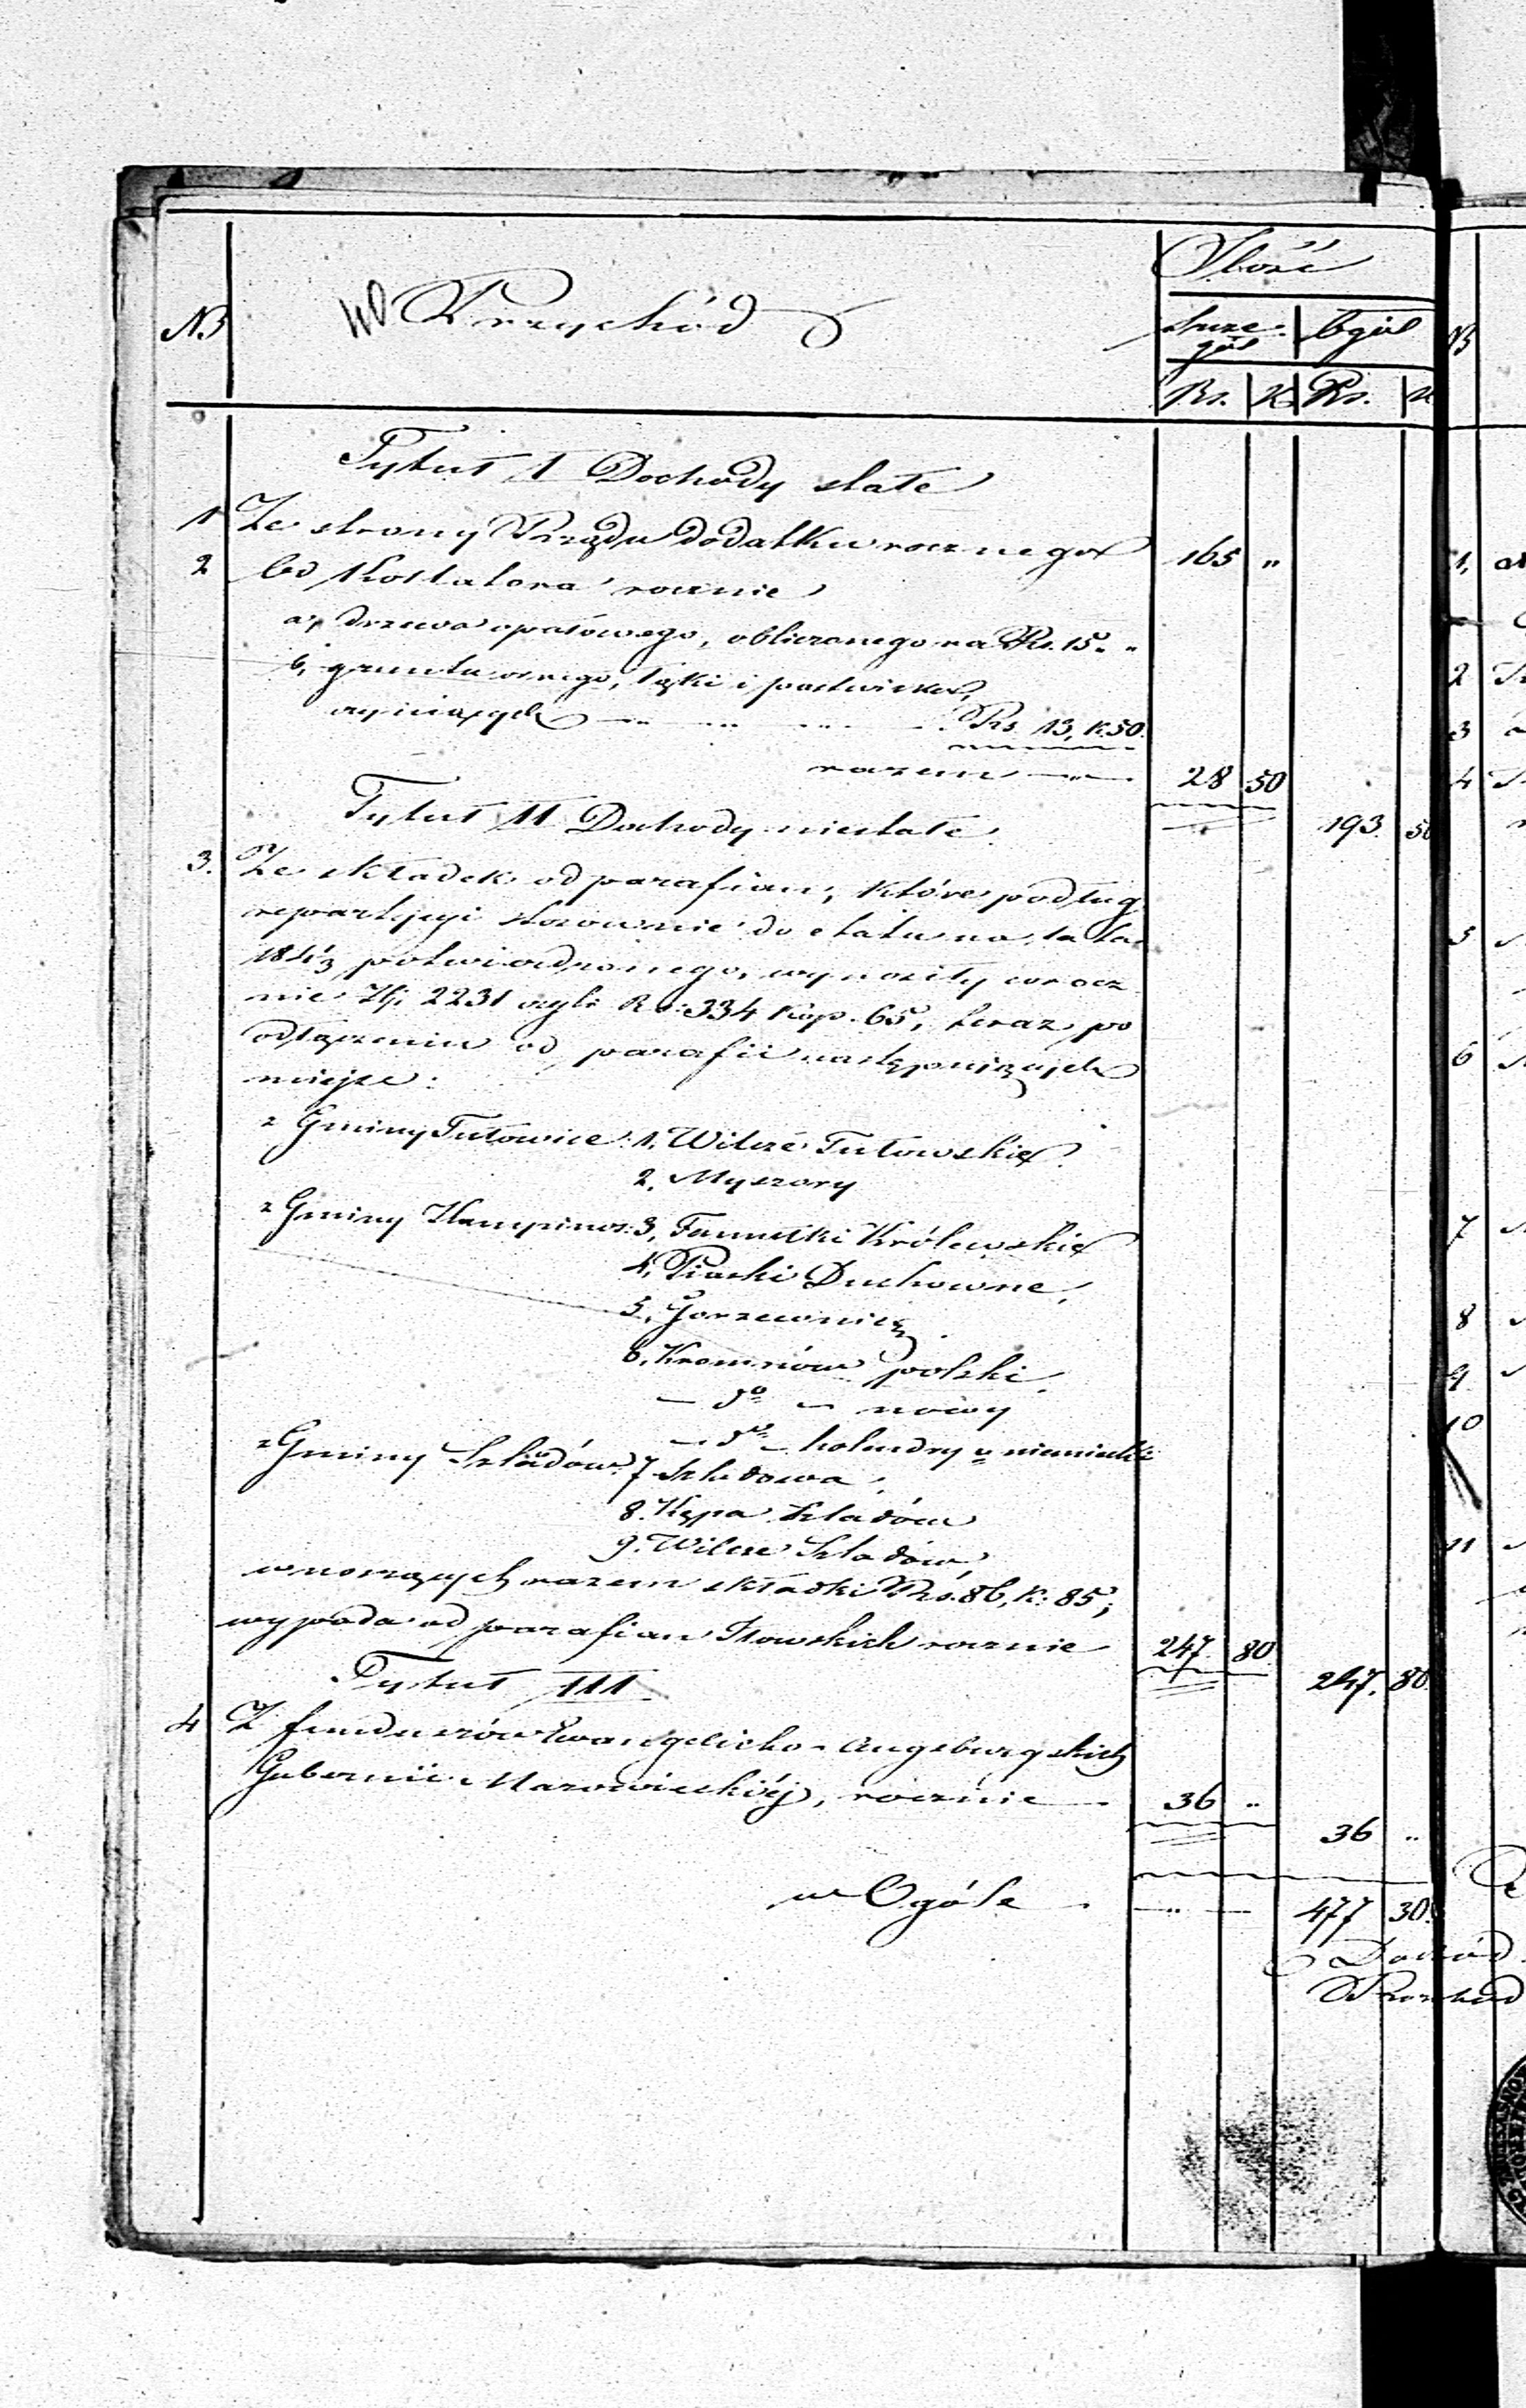 Ilość
No w Przychód
szcze- Ogół
gół
Rs. K Rs. K
Tytuł I Dochody stałe
1 Ze strony Rządu dodatku rocznego 165 "
2 Od Kollatora rocznie
a, drzewa opałowego, obliczonego na Rs. 15. "
b, gruntu ornego, łąki i pastwiska,
czyniących Rs 13, k. 50.
razem 28 50
Tytuł II Dochody niestałe. 193. 50
3. Ze składek od parafian, które podług
repartycyi stosownie do etatu na lata
184⅓ potwierdzonego, wynosiły corocz
nie Zł: 2231 czyli Rs: 334 Kop. 65, teraz po
odłączeniu od parafii następujących
miejsc:
z Gminy Tułowice: 1, Wilcze Tułowskie
2. Myszory
z Gminy Kampinos: 3, Famułki Królewskie
4, Piaski Duchowne,
5, Gorzewnica
6, Kromnów polski.
— do — nowy
— do — holendry v niemiecki
z Gminy Szladów: 7 Szladowa,
8. Kępa Szladów
9. Wilcze Szladów,
wnoszących razem składki Rs. 86, k: 85;
wypada od parafian Iłowskich rocznie 247. 80
Tytuł III. 247. 80.
4 Z funduszów Ewangelicko-Augsburgskich
Gubernii Mazowieckiéj, rocznie 36 "
36 "
w Ogóle 477 30.
Dochód
Rozchód